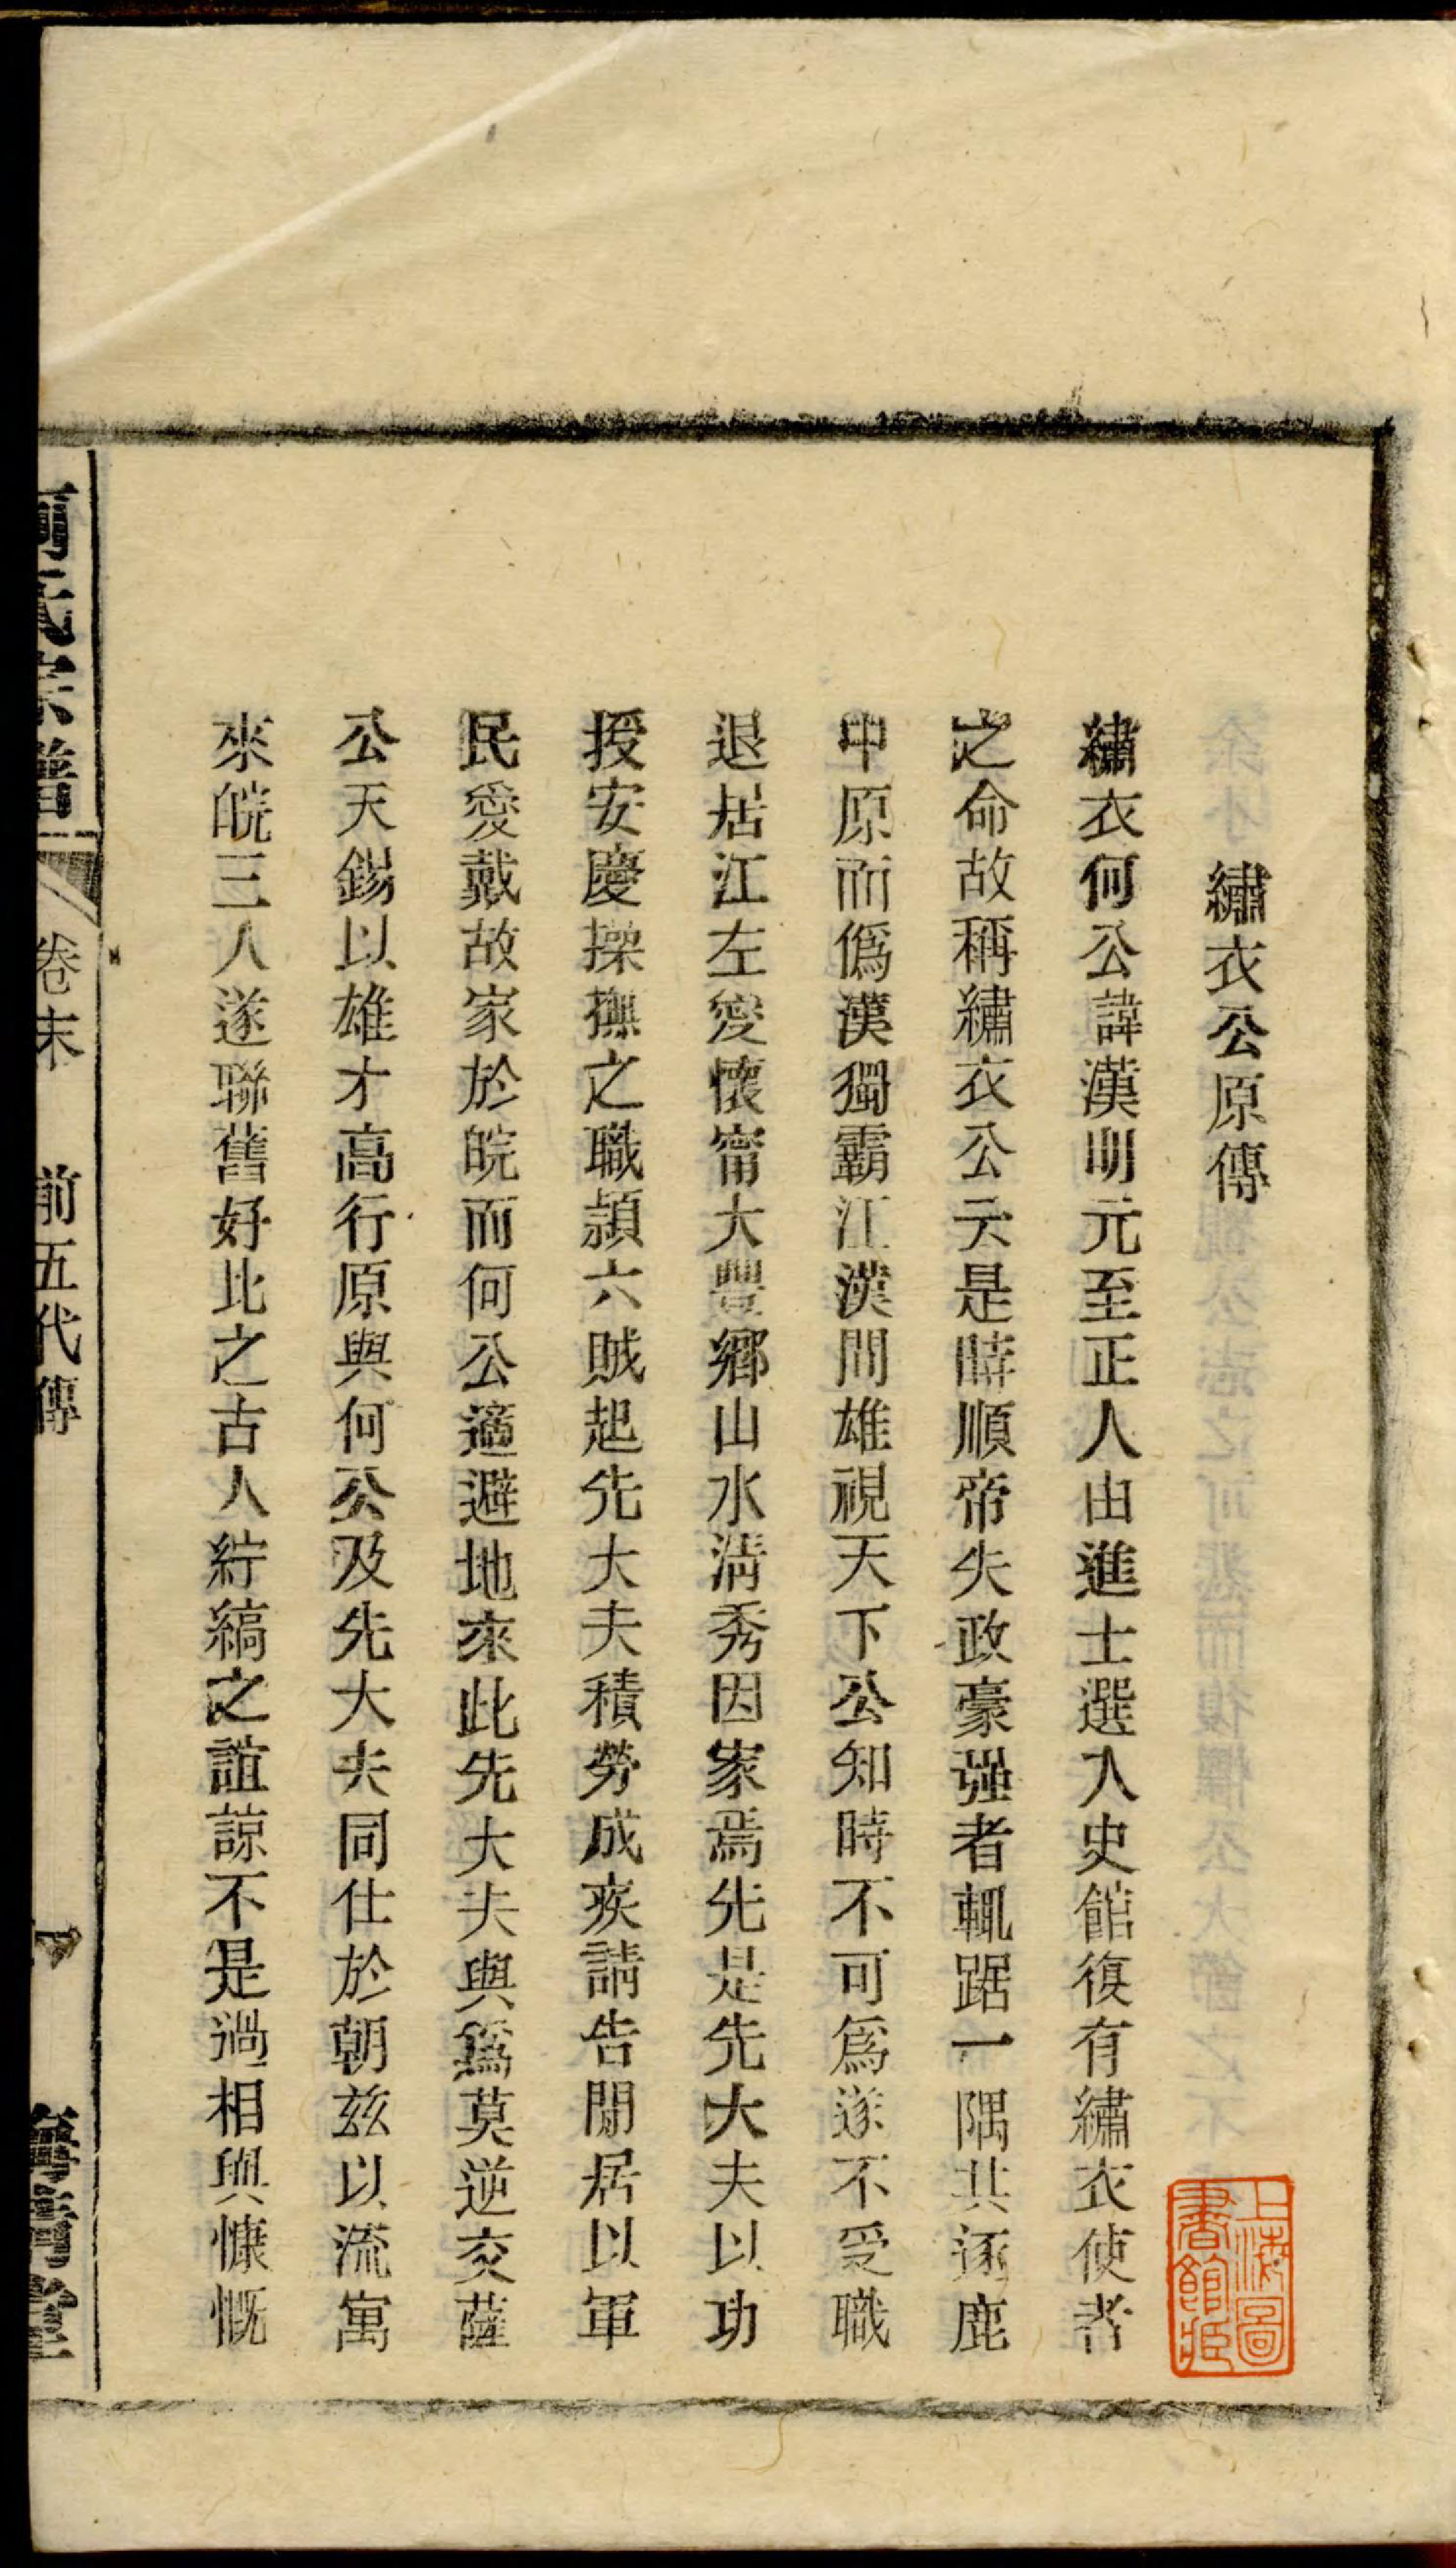 繡衣公原傳
繡衣何公諱漢明元至正人由進士選入史館復有繡衣使者
之命故稱繡衣公云是時順帝失政豪强者輒踞一隅共逐鹿
中原而僞漢獨霸江漢間雄視天下公知時不可爲遂不受職
退居江左愛懷甯大豐鄉山水淸秀因家焉先是先大夫以功
授安慶操撫之職潁六賊起先大夫積勞成疾請告閒居以軍
民愛戴故家於皖而何公適避地來此先大夫與爲莫逆交薩
公天錫以雄才高行原與何公及先大夫同仕於朝兹以流寓
來皖三人遂聯舊好比之古人紵縞之誼諒不是過相與慷慨
何氏宗譜
卷末
前五代傳
上海圖
書館藏